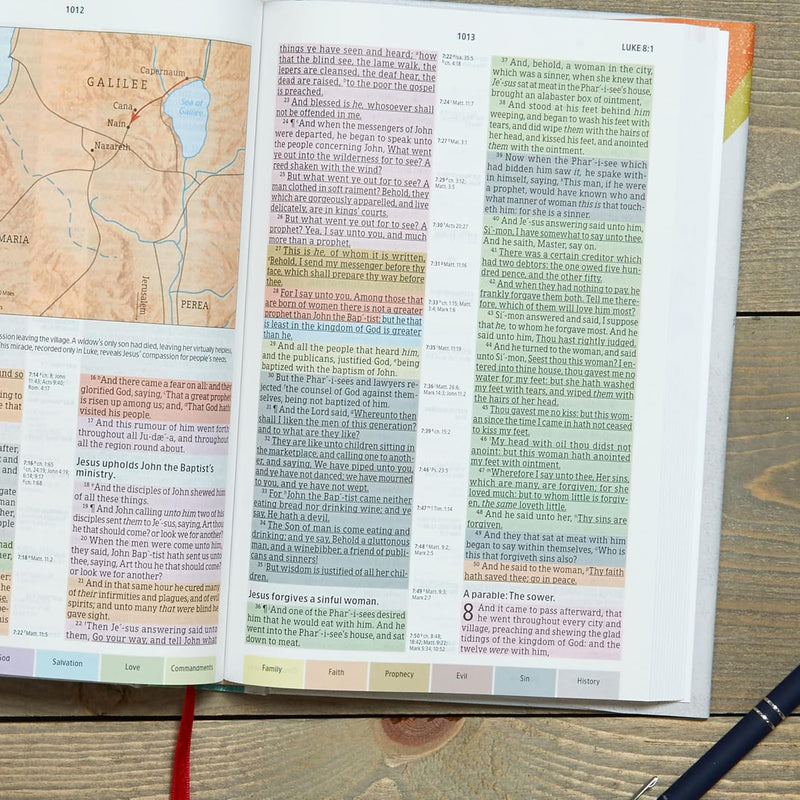 1012
GALILEE
Capernaum
Sea of
Galilee
Cana
Nain
Nazareth
MARIA
Jerusalem
PEREA
ssion leaving the village. A widow's only son had died, leaving her virtually helpless
his miracle, recorded only in Luke, reveals Jesus' compassion for people's needs.
7:14 ᵃch. 8; John
11:43; Acts 9:40;
Rom. 4:17
7:16 ᵃch. 1:65
ᵇch. 24:19; John 4:19;
6:14; 9:17
ᶜch. 1:68
7:18 ᵃMatt. 11:2
7:22 ᵃMatt. 11:5
16 ᵃAnd there came a fear on all: and they
glorified God, saying, ᵇThat a great prophet
is risen up among us; and, ᶜThat God hath
visited his people.
17 And this rumour of him went forth
throughout all Ju-dæ´-a, and throughout
all the region round about.
Jesus upholds John the Baptist's
ministry.
18 ᵃAnd the disciples of John shewed him
of all these things.
19 ¶ And John calling unto him two of his
disciples sent them to Je´-sus, saying, Art thou
he that should come? or look we for another?
20 When the men were come unto him,
they said, John Bap´-tist hath sent us unto
thee, saying, Art thou he that should come?
or look we for another?
21 And in that same hour he cured many
of their infirmities and plagues, and of evil
spirits; and unto many that were blind he
gave sight.
22 ᵃThen Je´-sus answering said unto
them, Go your way, and tell John what
God
Salvation
Love
Commandments
1013
LUKE 8:1
things ye have seen and heard; ᵃhow
that the blind see, the lame walk, the
lepers are cleansed, the deaf hear, the
dead are raised, ᵇto the poor the gospel
is preached.
23 And blessed is he, whosoever shall
not be offended in me.
24 ¶ ᵃAnd when the messengers of John
were departed, he began to speak unto
the people concerning John, What went
ye out into the wilderness for to see? A
reed shaken with the wind?
25 But what went ye out for to see? A
man clothed in soft raiment? Behold, they
which are gorgeously apparelled, and live
delicately, are in kings' courts.
26 But what went ye out for to see? A
prophet? Yea, I say unto you, and much
more than a prophet.
27 This is he, of whom it is written,
ᵃBehold, I send my messenger before thy
face, which shall prepare thy way before
thee.
28 For I say unto you, Among those that
are born of women there is not a greater
prophet than John the Bap´-tist: but he that
is least in the kingdom of God is greater
than he.
29 And all the people that heard him,
and the publicans, justified God, ᵃbeing
baptized with the baptism of John.
30 But the Phar´-i-sees and lawyers re-
jected ᵃthe counsel of God against them-
selves, being not baptized of him.
31 ¶ And the Lord said, ᵃWhereunto then
shall I liken the men of this generation?
and to what are they like?
32 They are like unto children sitting in
the marketplace, and calling one to anoth-
er, and saying, We have piped unto you,
and ye have not danced; we have mourned
to you, and ye have not wept.
33 For ᵃJohn the Bap´-tist came neither
eating bread nor drinking wine; and ye
say, He hath a devil.
34 The Son of man is come eating and
drinking; and ye say, Behold a gluttonous
man, and a winebibber, a friend of publi-
cans and sinners!
35 ᵃBut wisdom is justified of all her chil-
dren.
Jesus forgives a sinful woman.
36 ¶ ᵃAnd one of the Phar´-i-sees desired
him that he would eat with him. And he
went into the Phar´-i-see's house, and sat
down to meat.
7:22 ᵃIsa. 35:5
ᵇch. 4:18
7:24 ᵃMatt. 11:7
7:27 ᵃMal. 3:1
7:29 ᵃch. 3:12;
Matt. 3:5
7:30 ᵃActs 20:27
7:31 ᵃMatt. 11:16
7:33 ᵃch. 1:15; Matt.
3:4; Mark 1:6
7:35 ᵃMatt. 11:19
7:36 ᵃMatt. 26:6;
Mark 14:3; John 11:2
7:39 ᵃch. 15:2
7:46 ᵃPs. 23:5
7:47 ᵃ1 Tim. 1:14
7:48 ᵃMatt. 9:2;
Mark 2:5
7:49 ᵃMatt. 9:3;
Mark 2:7
7:50 ᵃch. 8:48;
18:42; Matt. 9:22;
Mark 5:34; 10:52
37 And, behold, a woman in the city,
which was a sinner, when she knew that
Je´-sus sat at meat in the Phar´-i-see's house,
brought an alabaster box of ointment,
38 And stood at his feet behind him
weeping, and began to wash his feet with
tears, and did wipe them with the hairs of
her head, and kissed his feet, and anointed
them with the ointment.
39 Now when the Phar´-i-see which
had bidden him saw it, he spake with-
in himself, saying, ᵃThis man, if he were
a prophet, would have known who and
what manner of woman this is that touch-
eth him: for she is a sinner.
40 And Je´-sus answering said unto him,
Si´-mon, I have somewhat to say unto thee.
And he saith, Master, say on.
41 There was a certain creditor which
had two debtors: the one owed five hun-
dred pence, and the other fifty.
42 And when they had nothing to pay, he
frankly forgave them both. Tell me there-
fore, which of them will love him most?
43 Si´-mon answered and said, I suppose
that he, to whom he forgave most. And he
said unto him, Thou hast rightly judged.
44 And he turned to the woman, and said
unto Si´-mon, Seest thou this woman? I en-
tered into thine house, thou gavest me no
water for my feet: but she hath washed
my feet with tears, and wiped them with
the hairs of her head.
45 Thou gavest me no kiss: but this wom-
an since the time I came in hath not ceased
to kiss my feet.
46 ᵃMy head with oil thou didst not
anoint: but this woman hath anointed
my feet with ointment.
47 ᵃWherefore I say unto thee, Her sins,
which are many, are forgiven; for she
loved much: but to whom little is forgiv-
en, the same loveth little.
48 And he said unto her, ᵃThy sins are
forgiven.
49 And they that sat at meat with him
began to say within themselves, ᵃWho is
this that forgiveth sins also?
50 And he said to the woman, ᵃThy faith
hath saved thee; go in peace.
A parable: The sower.
8 And it came to pass afterward, that
he went throughout every city and
village, preaching and shewing the glad
tidings of the kingdom of God: and the
twelve were with him,
Family
Faith
Prophecy
Evil
Sin
History